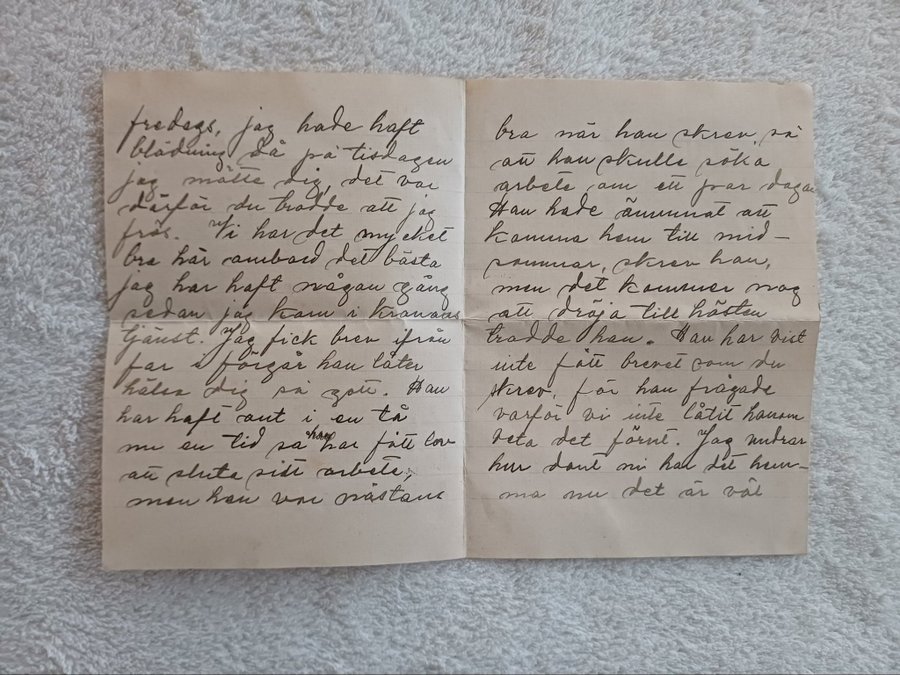 fredags, jag hade haft
blödning då på tisdagen
jag mötte dig, det var
därför du trodde att jag
frös. Vi har det mycket
bra här ombord det bästa
jag har haft någon gång
sedan jag kom i kronans
tjänst. Jag fick brev ifrån
far i förgår han låter
hälsa dig så gott. Han
har haft ont i en tå
nu en tid så han har fått lov
att sluta sitt arbete,
men han var nästans
bra när han skrev, så
att han skulle söka
arbete om ett par dagar
Han hade ämnnat att
komma hem till mid-
sommar, skrev han,
men det kommer nog
att dröja till hösten
trodde han. Han har vist
inte fått brevet som du
skrev, för han frågade
varför vi inte låtit honom
veta det förut. Jag undrar
hur dant ni har det hem-
ma nu det är väl